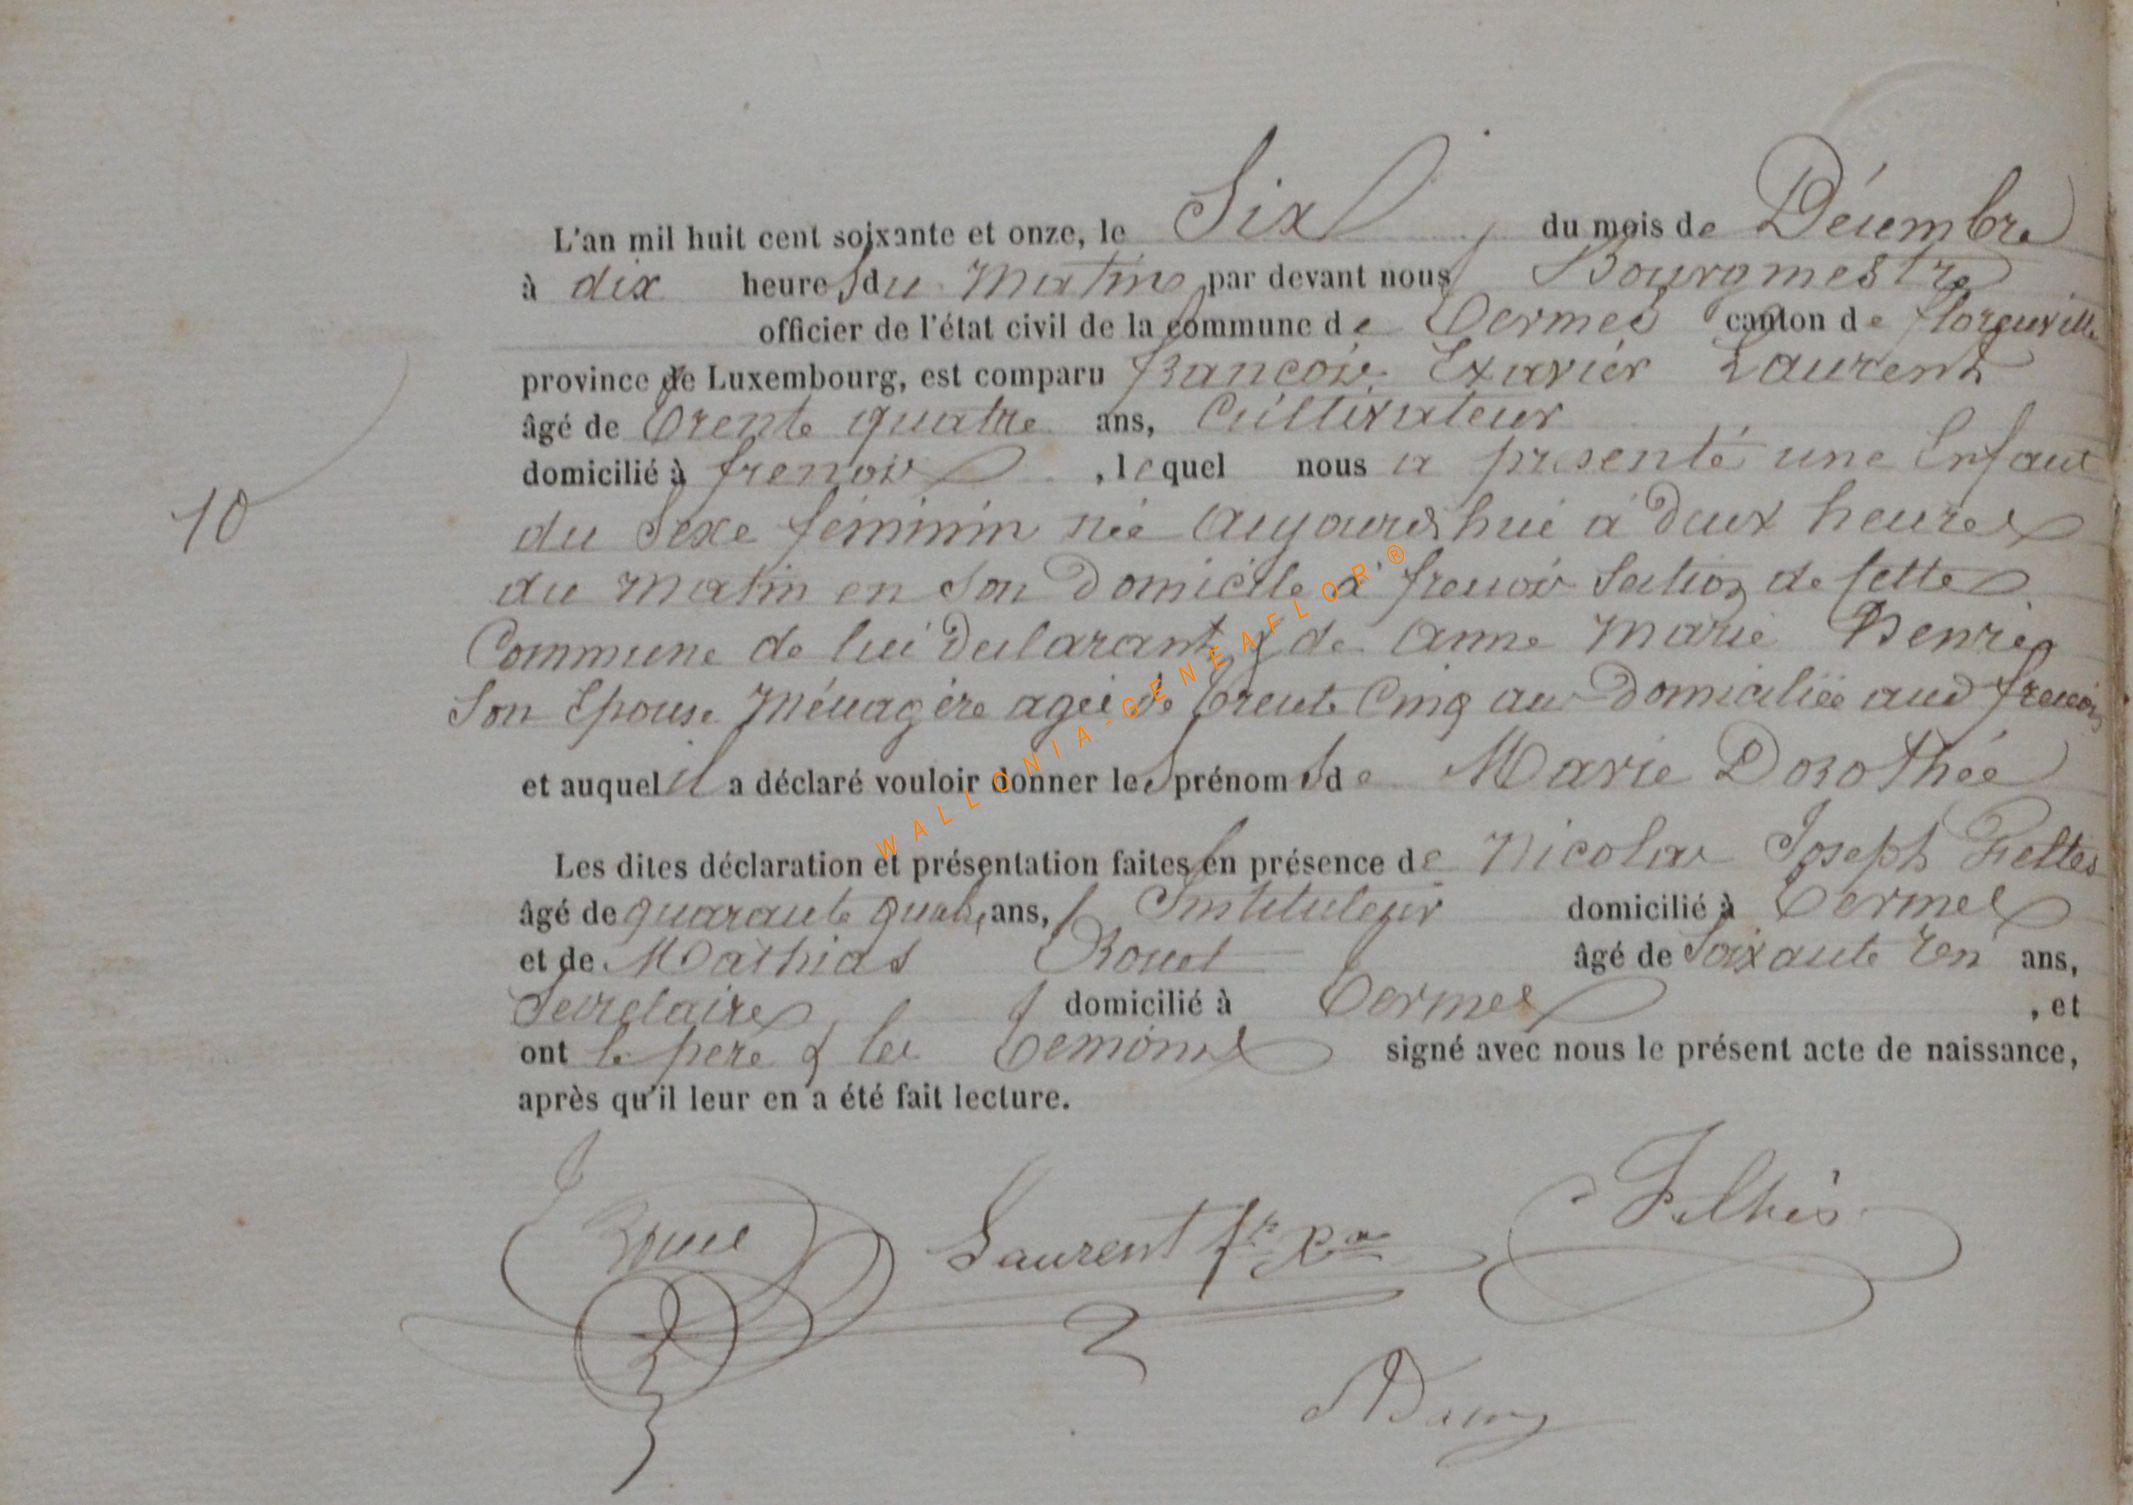 L'an mil huit cent soixante et onze, le Six du mois de Décembre
à dix heures du Matin par devant nous Bourgmestre
officier de l'état civil de la commune de Termes canton de florenville
province de Luxembourg, est comparu francois Exavier Laurent
âgé de trente quatre ans, Cultivateur
domicilié à frenois, lequel nous a présenté une Enfant
10
du Sexe féminin née aujourdhui à deux heures
du matin en Son Domicile à frenois Section de Cette
Commune de lui Déclarant & de anne Marie Henri
Son Epouse Ménagère agée de trente Cinq ans Domiciliée aud frenois
et auquel il a déclaré vouloir donner les prénoms de Marie Dorothée
Les dites déclaration et présentation faites en présence de Nicolas Joseph Feltes
âgé de quarante quatre ans, Instituteur domicilié à Termes
et de Mathias Rouet âgé de Soixante ans,
Secretaire domicilié à Termes, et
ont le pere & les temoins signé avec nous le présent acte de naissance,
après qu'il leur en a été fait lecture.
Laurent fr
WALLONIA-GENEAFLOR®